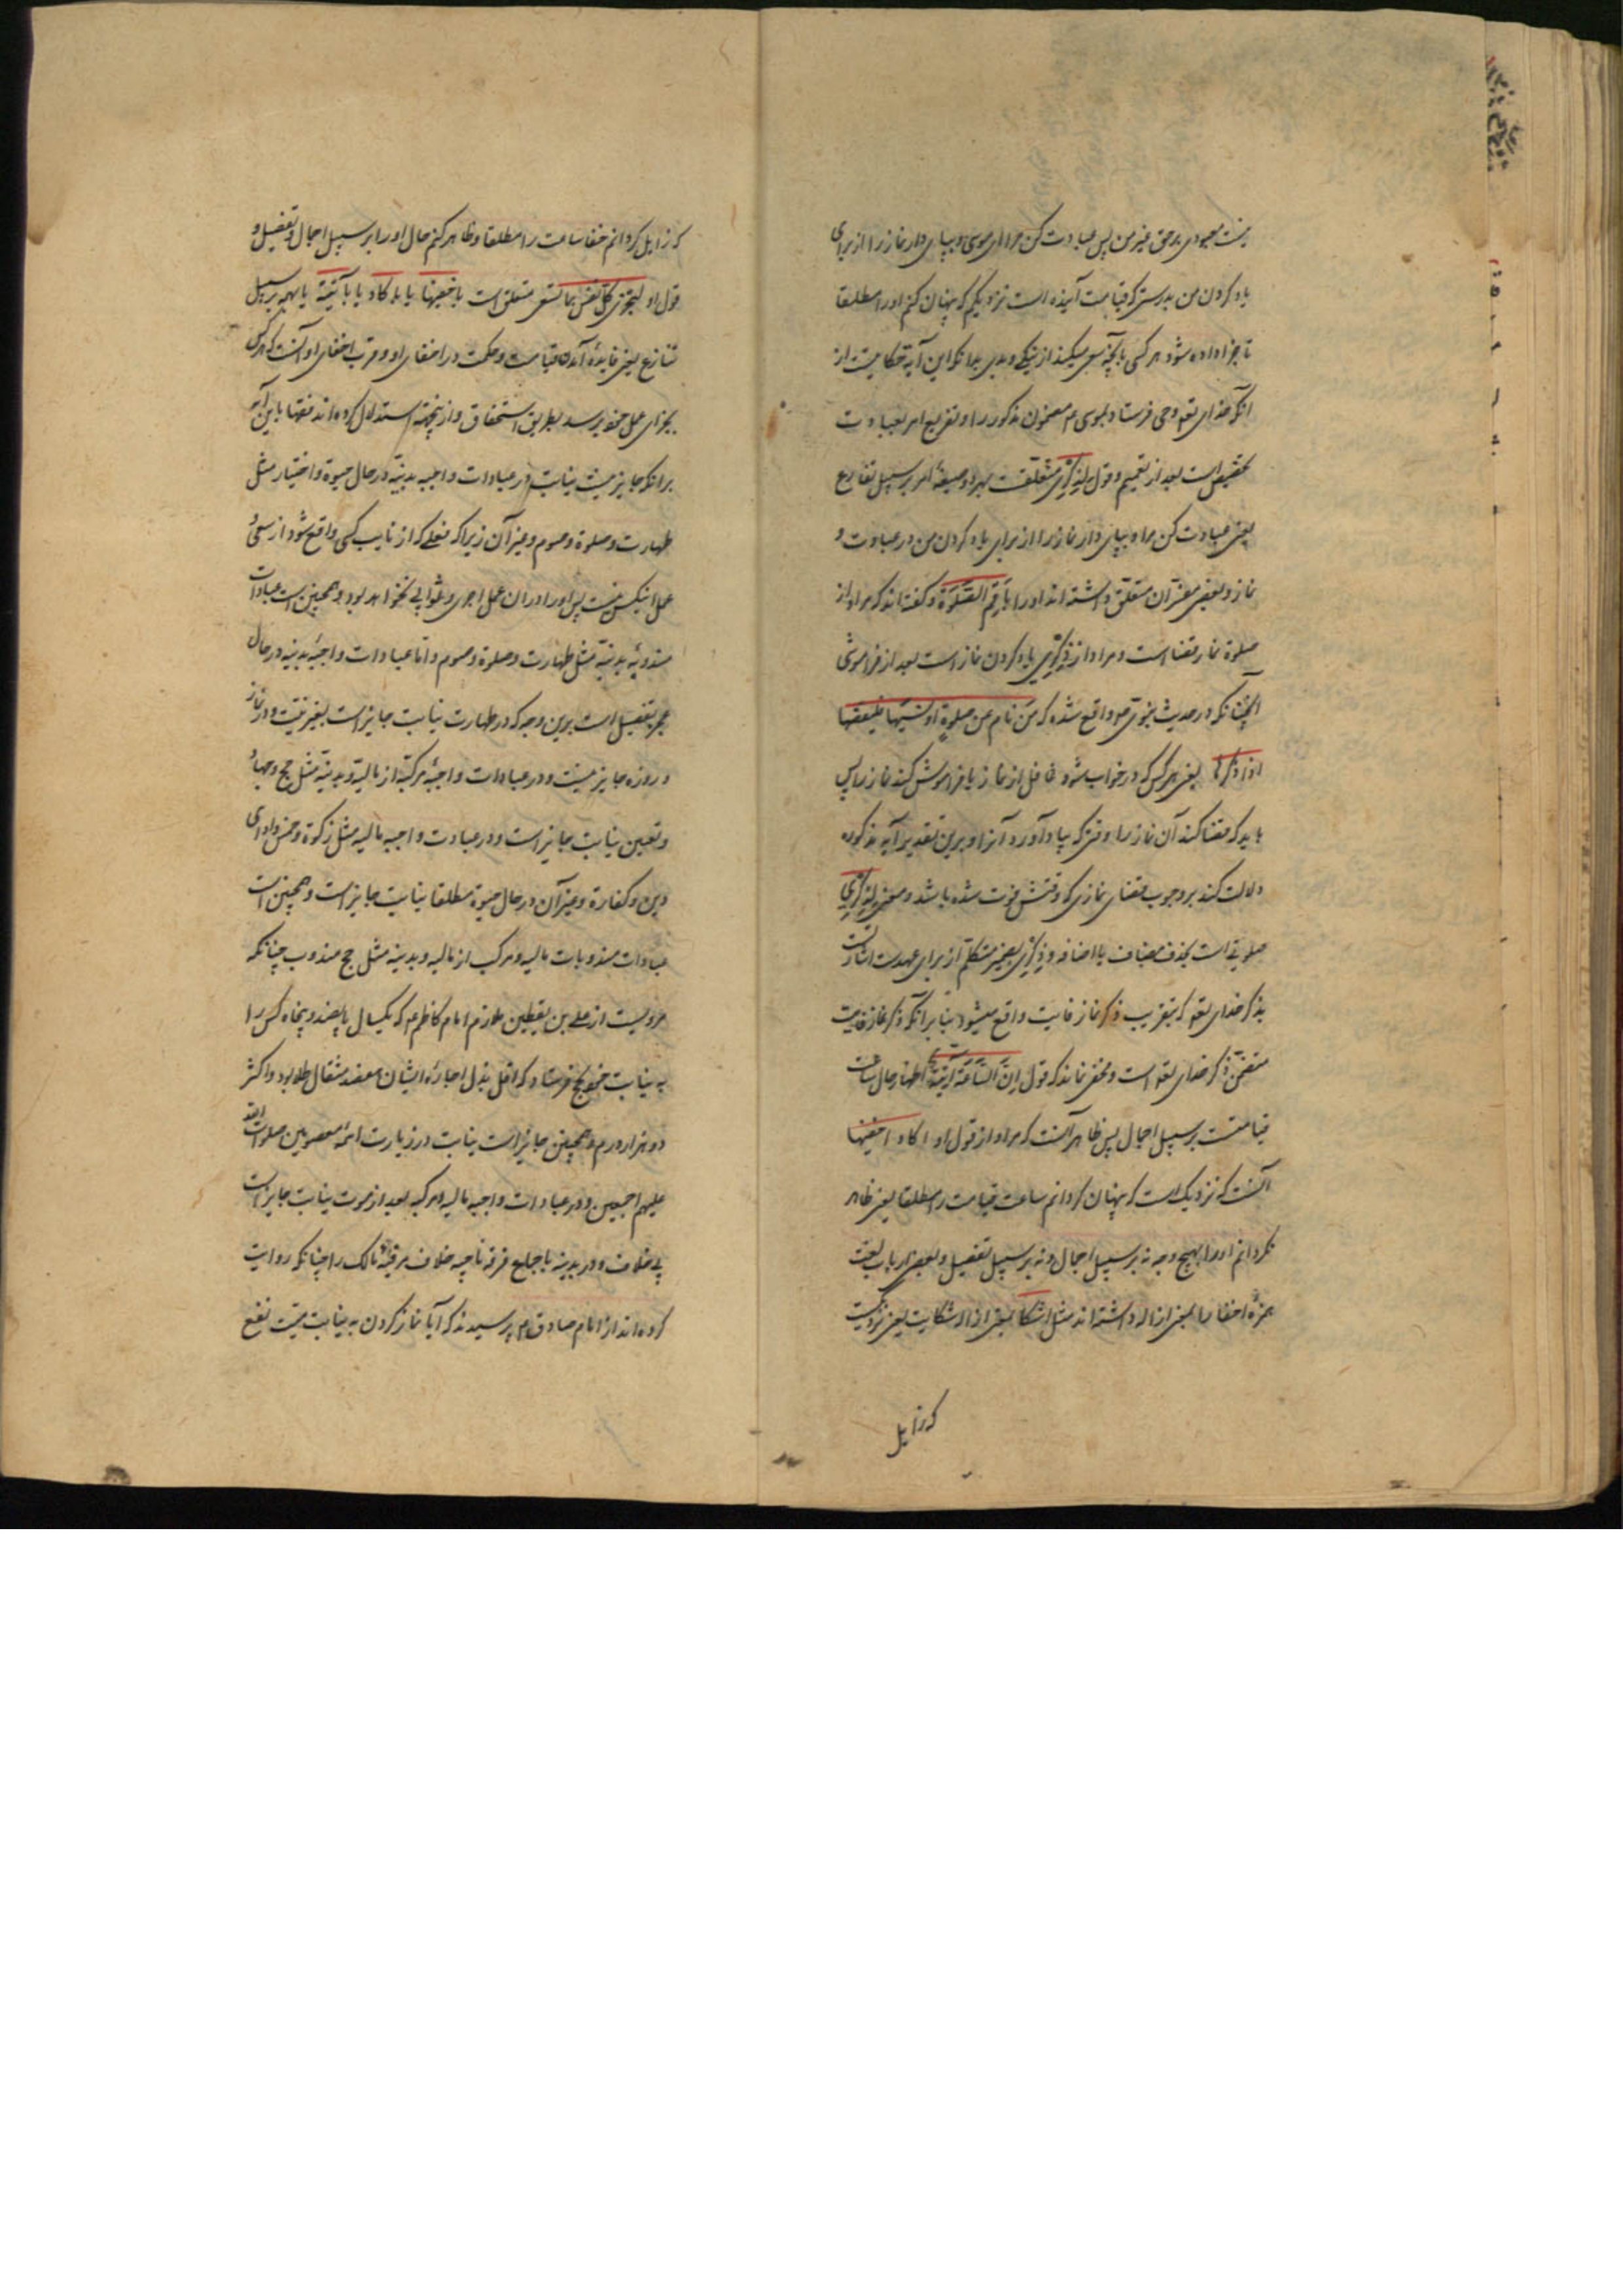 نیست معبودی بر حق غیر من پس عبادت کن مرا ای موسی و بپای دار نماز را از برای
یاد کردن من بدرستی که قیامت آینده است نزدیکم که پنهان کنم او را مطلقا
تا جزا داده شود هر کسی بآنچه سعی میکند از نیکی و بدی بدانکه این آیه حکایتست از
انکه خدای تعه وحی فرستاد بموسی عم مضمون مذکور را و تفریع امر بعبادت
تخصیص است بعد از تعمیم و قول لِذِکْرِی متعلّقست بهر دو صیغهٔ امر بر سبیل تنازع
یعنی عبادت کن مرا و بپای دار نماز را از برای یاد کردن من در عبادت و
نماز و بعضی مفسّران متعلّق داشته‌اند او را باَقِمِ الصَّلوٰةَ و گفته‌اند که مراد از
صلوة نماز قضا است و مراد از ذِکْرِی یاد کردن نماز است بعد از فراموشی
آنچنانکه در حدیث نبوی صلعم واقع شده که مَن نام عن صلوةٍ او نسیها فلیقضها
اذا ذکرها یعنی هر کس که در خواب شود غافل از نماز یا فراموش کند نماز را پس
باید که قضا کند آن نماز را وقتی که بیاد آورد آنرا و برین تقدیر آیه مذکوره
دلالت کند بر وجوب قضای نمازی که وقتش فوت شده باشد و معنی لِذِکْرِی
صلوتی است بحذف مضاف یا اضافه ذِکْرِی بضمیر متکلّم از برای عهدست اشارتست
بذکر خدای تعه که بتقریب ذکر نماز فایت واقع میشود بنا بر آنکه ذکر نماز فایت
متضمّن ذکر خدای تعه است و مخفی نماند که قول اِنَّ السَّاعَةَ آتِیَةٌ اظهار حال ساعت
قیامتست بر سبیل اجمال پس ظاهر آنست که مراد از قول او اکاد اخفیها
آنست که نزدیک است که پنهان کردانم ساعت قیامت را مطلقا یعنی ظاهر
نکردانم او را بهیچ وجه نه بر سبیل اجمال و نه بر سبیل تفصیل و بعضی ارباب لغت
همزهٔ اخفا را بمعنی ازاله داشته‌اند مثل اشکا بمعنی ازاله شکایت یعنی نزدیکست
که زایل
که زایل کردانم خفا ساعت را مطلقا و ظاهر کنم حال او را بر سبیل اجمال و تفصیل و
قول او لتجزی کل نفس بما تسعی متعلق است باخفیها یا باکاد یا بآتیة یا بهمه بر سبیل
تنازع یعنی فایدهٔ آمدن قیامت و حکمت در اخفای او و قرب اخفای او آنست که هر کس
بجزای عمل خود برسد بطریق استحقاق و از ینجهة استدلال کرده‌اند فقها باین آیه
بر انکه جایز نیست نیابت در عبادات واجبه بدنیّه در حال حیوة و اختیار مثل
طهارت و صلوة و صوم و غیر آن زیرا که فعلی که از نایب کسی واقع شود از سعی و
عمل آنکس نیست پس او را در ان عمل اجری و ثوابی نخواهد بود و همچنین است عبادات
مندوبهٔ بدنیّه مثل طهارت و صلوة و صوم و اما عبادات واجبهٔ بدنیه در حال
عجز بتفصیل است برین وجه که در طهارت نیابت جایز است بغیر نیّت و در نماز
و روزه جایز نیست و در عبادات واجبهٔ مرکبّه از مالیّة و بدنیّه مثل حج و جهاد
و تعین نیابت جایز است و در عبادت واجبه مالیه مثل زکوة و خمس و ادای
دین و کفارة و غیر آن در حال حیوة مطلقا نیابت جایز است و همچنین است
عبادات مندوبات مالیه و مرکب از مالیه و بدینه مثل حج مندوب چنانکه
مرویست از علی بن یقطین ملازم امام کاظم عم که یکسال پانصد و پنجاه کس را
به نیابت خود بحج فرستاد که اقل بذل اجارهٔ ایشان هفصد مثقال طلا بود و اکثر
دو هزار درم و همچنین جایز است نیابت در زیارت ائمه معصومین صلوات الله
علیهم اجمعین و در عبادات واجبه مالیه و مرکبه بعد از موت نیابت جایز است
بی خلاف و در بدینه باجماع فرقه ناجیه خلاف مر فقهٔ مالک را چنانکه روایت
کرده‌اند از امام صادق عم پرسیدند که آیا نماز کردن به نیابت میّت نفع